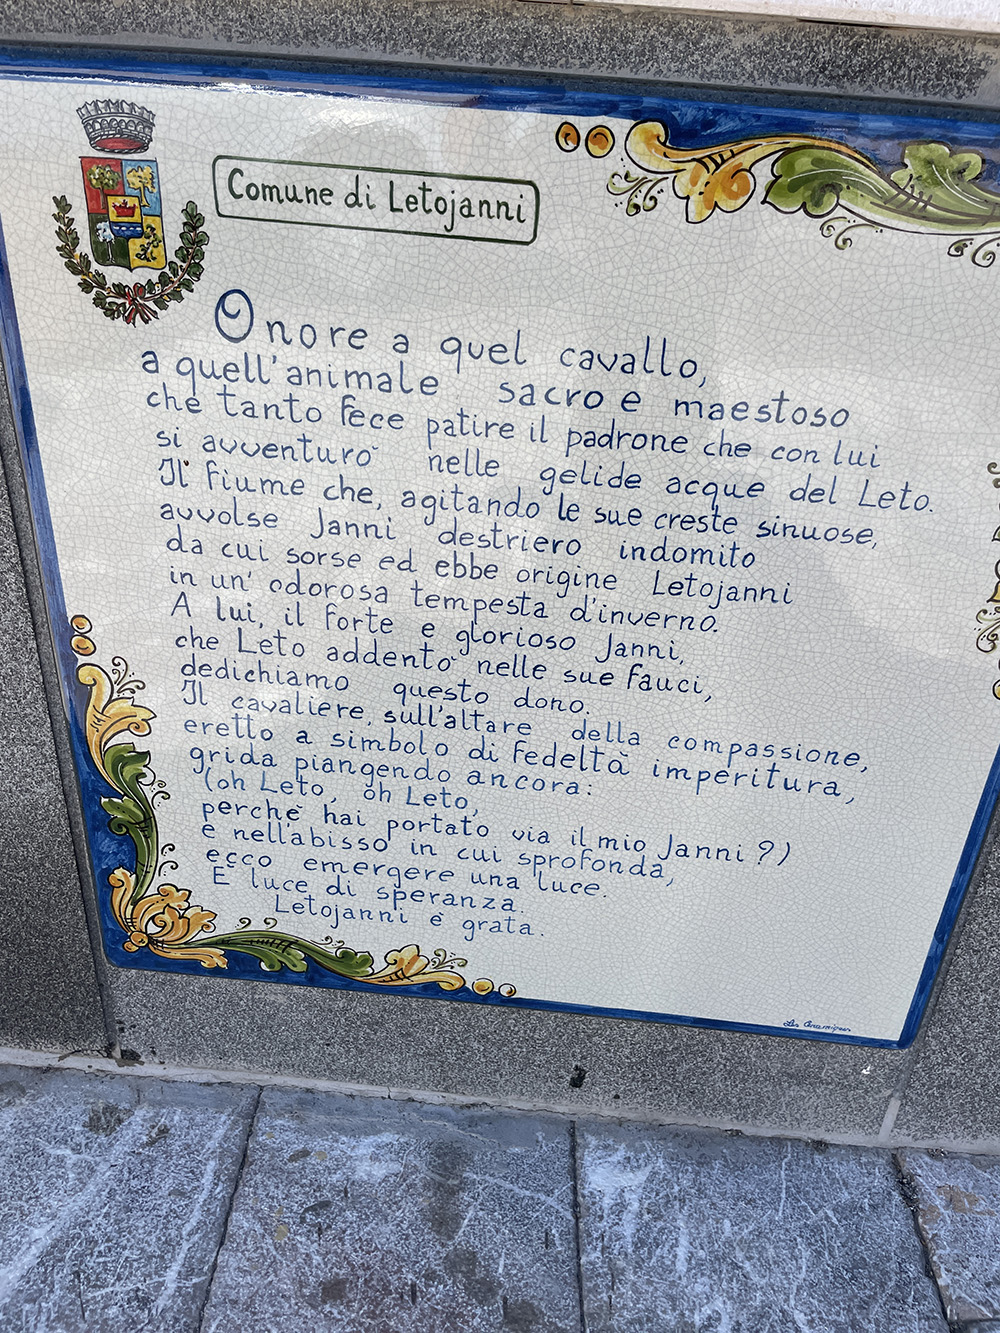 Comune di Letojanni
Onore a quel cavallo,
a quell'animale sacro e maestoso
che tanto fece patire il padrone che con lui
si avventurò nelle gelide acque del Leto.
Il fiume che, agitando le sue creste sinuose,
avvolse Janni destriero indomito
da cui sorse ed ebbe origine Letojanni
in un' odorosa tempesta d'inverno.
A lui, il forte e glorioso Janni,
che Leto addentò nelle sue fauci,
dedichiamo questo dono.
Il cavaliere, sull'altare della compassione,
eretto a simbolo di fedeltà imperitura,
grida piangendo ancora:
(oh Leto, oh Leto,
perchè hai portato via il mio Janni?)
e nell'abisso in cui sprofonda,
ecco emergere una luce.
E' luce di speranza.
Letojanni è grata.